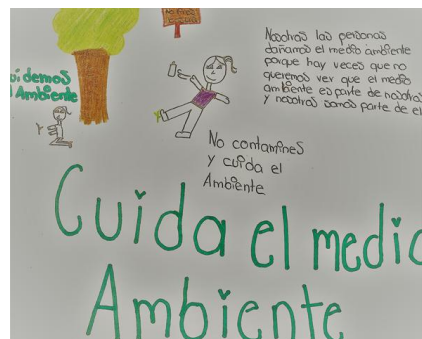 Nosotras las personas
dañamos el medio ambiente
porque hay veces que no
queremos ver que el medio
ambiente es parte de nosotras
y nosotras somos parte de el
Ambiente
No contamines
y cuida el
Ambiente
Cuida el medio
Ambiente